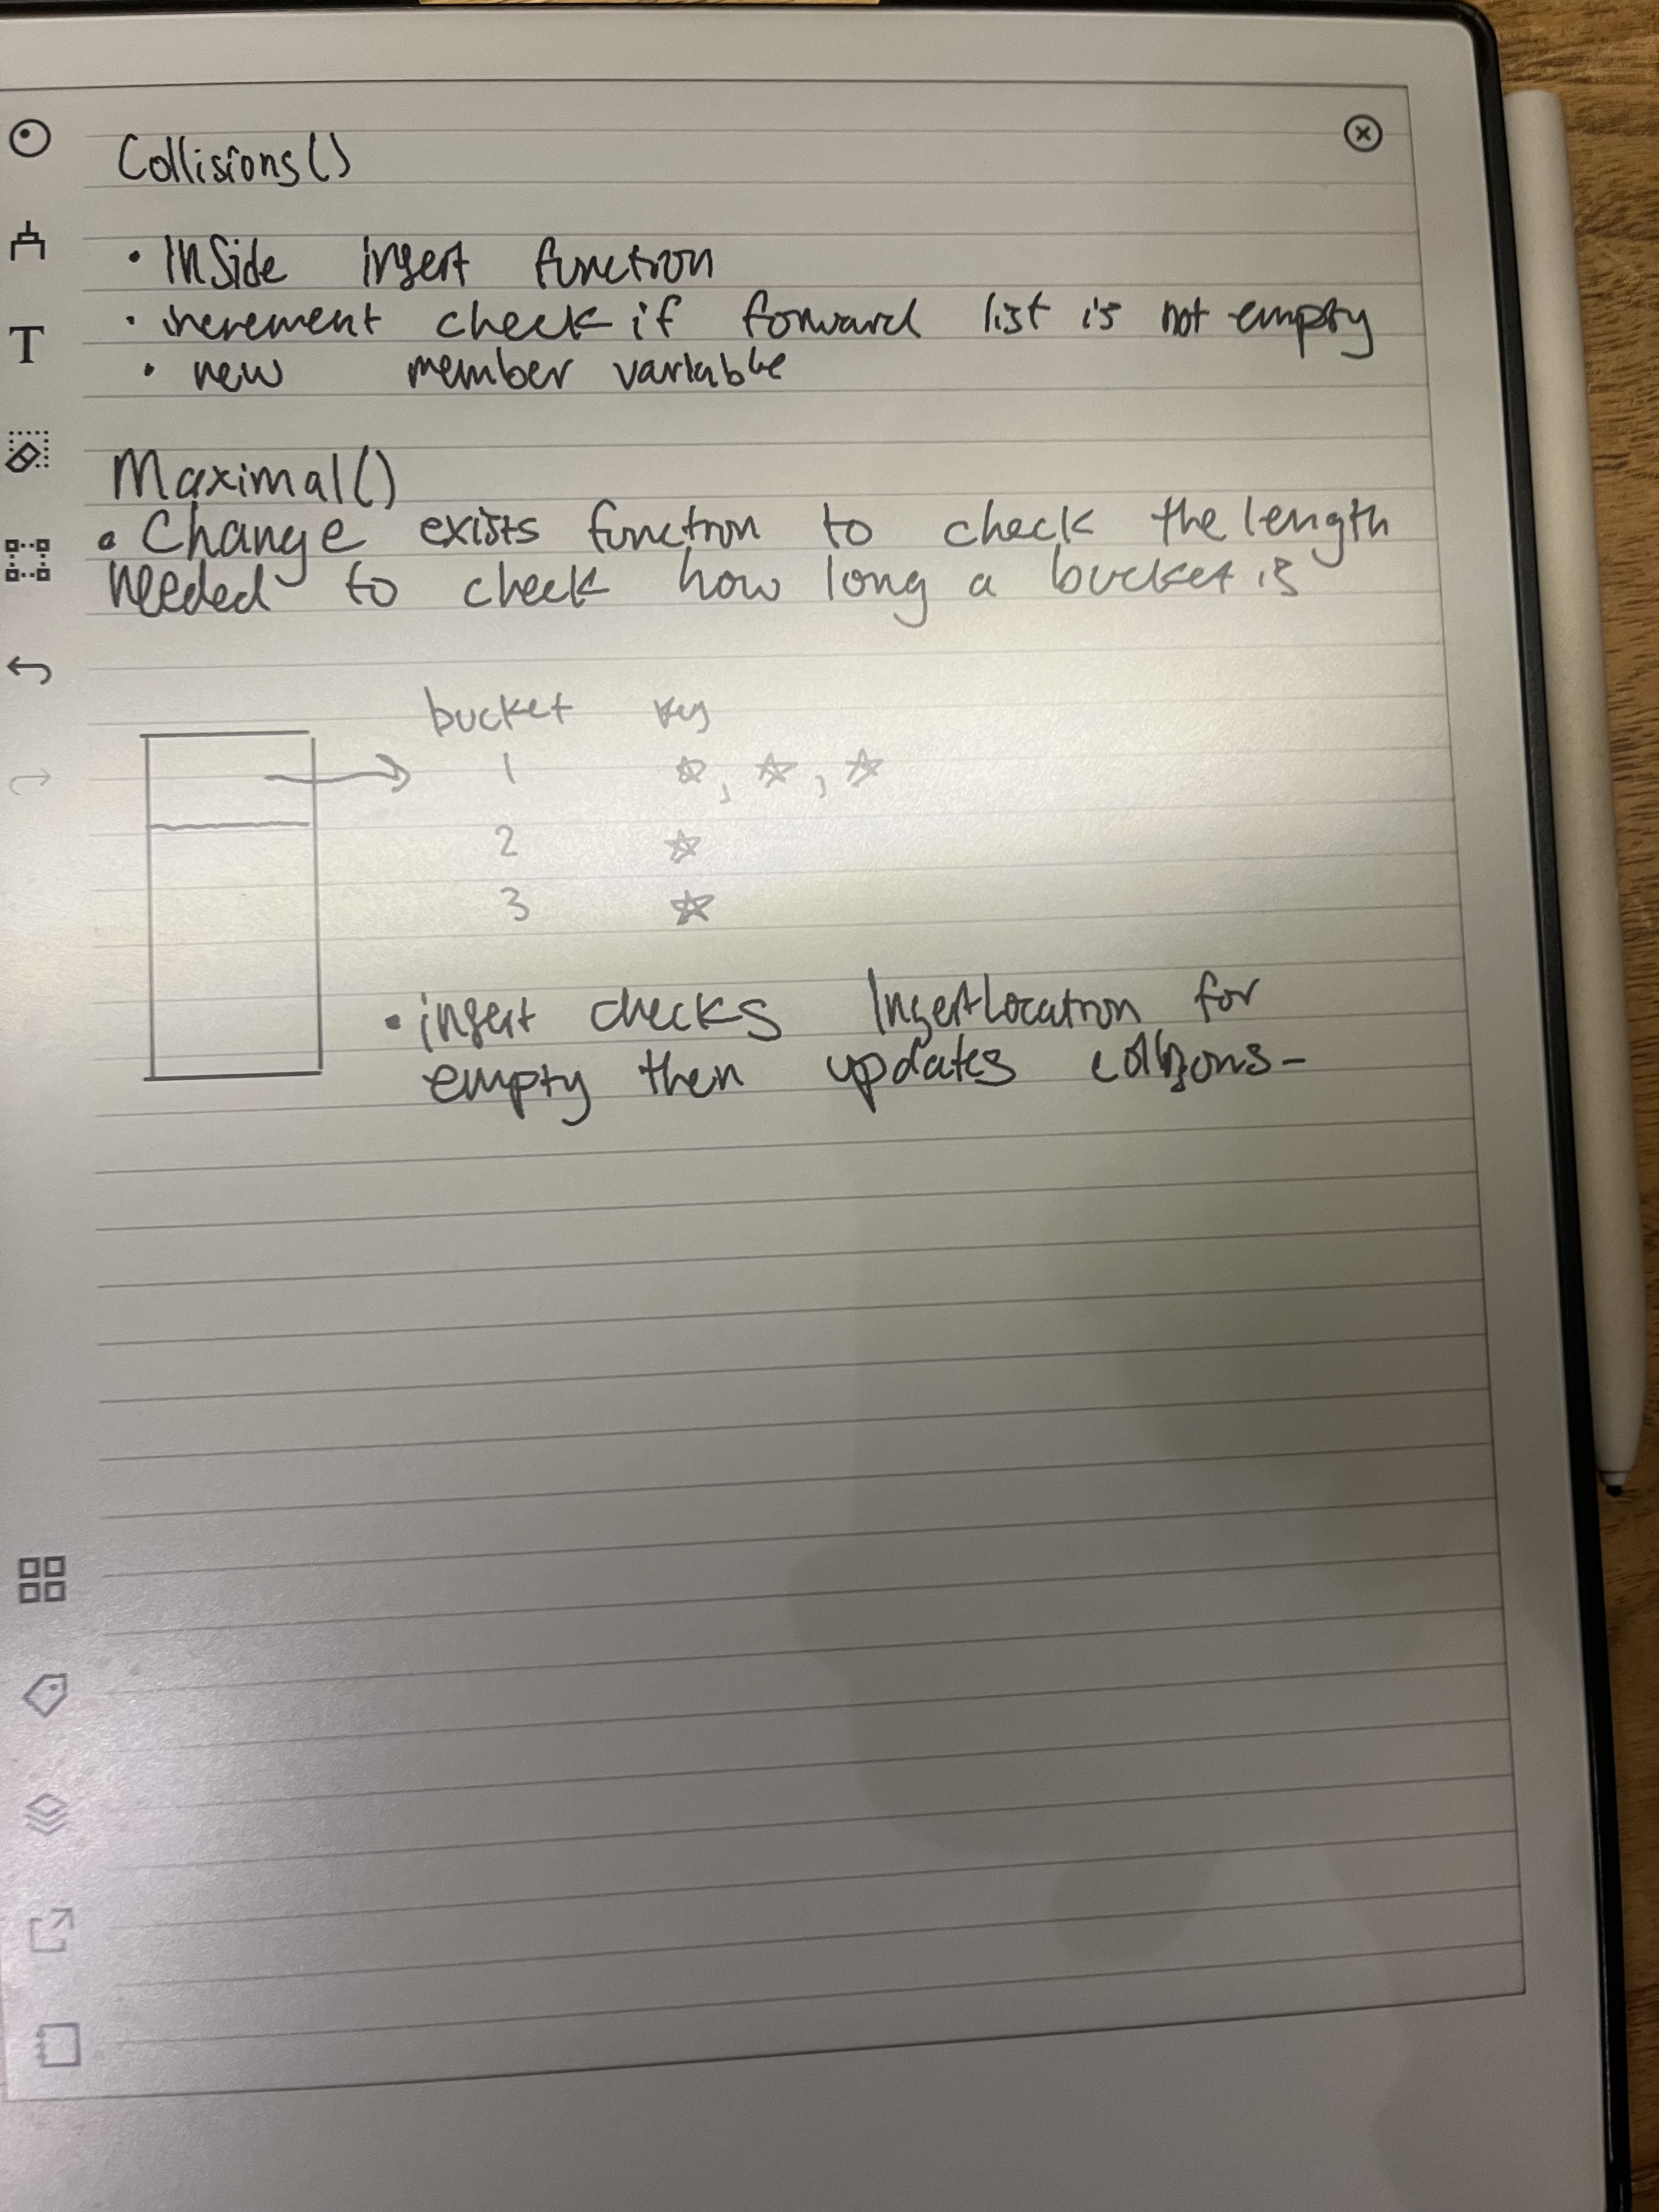 Collisions()
• Inside insert function
• increment check if forward list is not empty
• new member variable
Maximal()
• Change exists function to check the length
needed to check how long a bucket is
bucket key
1
2
3
• insert checks InsertLocation for
empty then updates collisions-
T